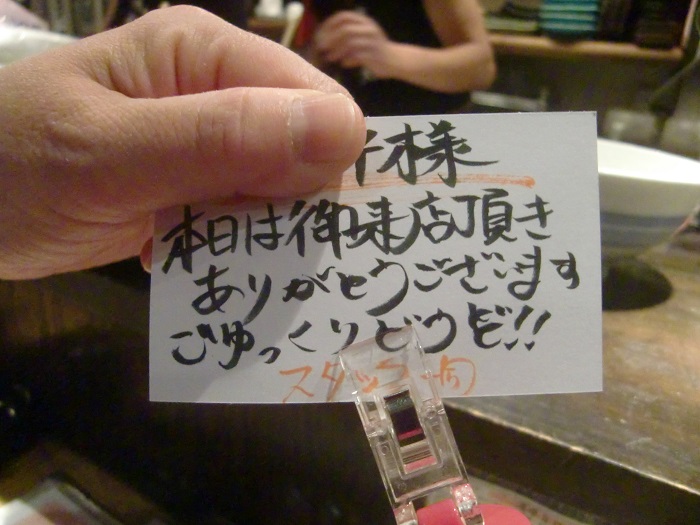 様
本日は御来店頂き
ありがとうございます
ごゆっくりどうぞ!!
スタッフ一同